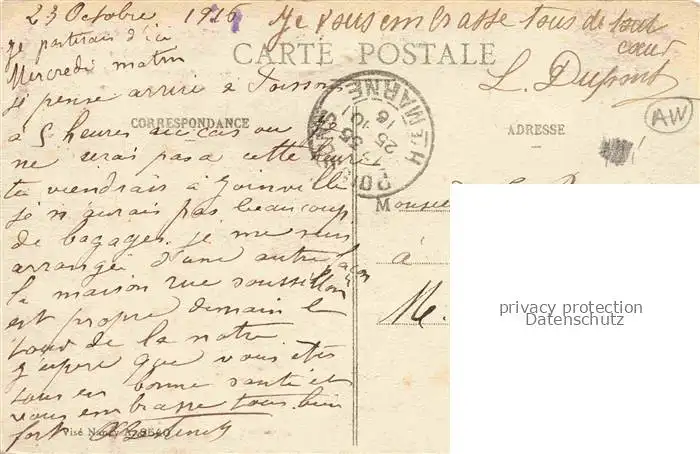 23 Octobre 1916
Je vous embrasse tous de tout
cœur
L. Dupont
CARTE POSTALE
je partirais d'ici
Mercredi matin
je pense arrivé a
CORRESPONDANCE
ADRESSE
AW
a 5 heures au cas ou je
ne serai pas a cette heure
tu viendrais à Joinville
je n'aurais pas beaucoup
de bagages. je me suis
arrangé d'une autre façon
la maison rue
est propre demain le
tour de la notre
j'espere que vous etes
tous en bonne santé et
vous embrasse tous bien
fort
Hte MARNE
25 10
16
Monsieur
à
M.
privacy protection
Datenschutz
Visé Nancy